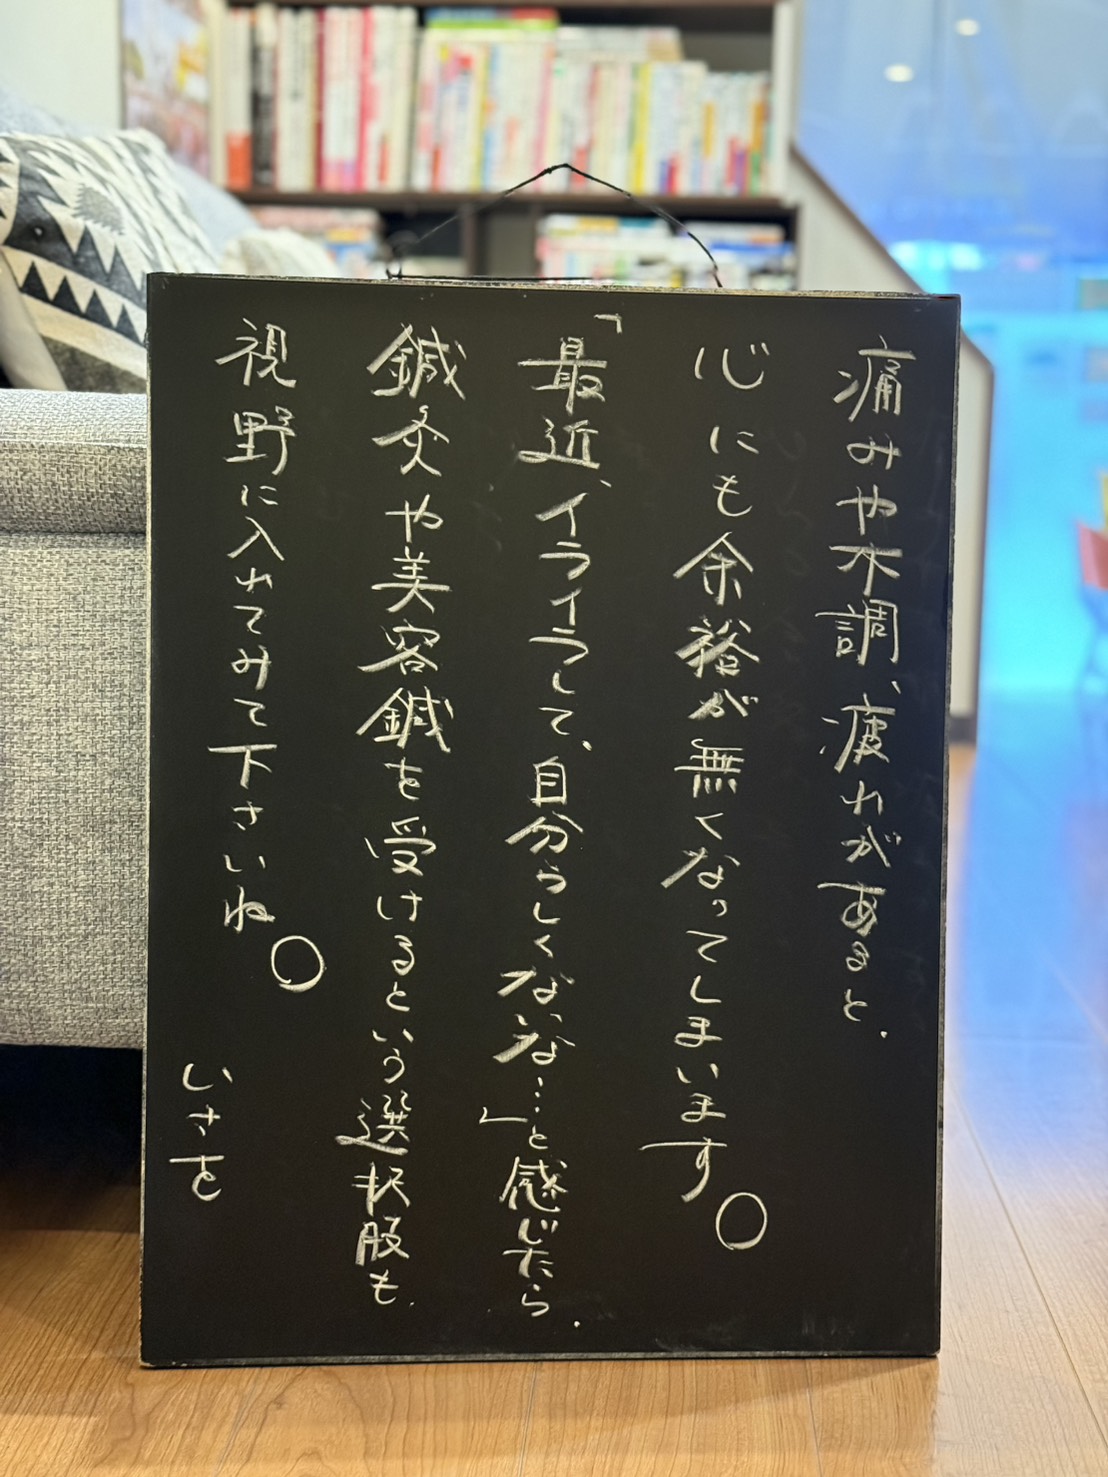 痛みや不調、疲れがあると、
心にも余裕が無くなってしまいます。
「最近、イライラして、自分らしくないな…」と感じたら、
鍼灸や美容鍼を受けるという選択肢も、
視野に入れてみて下さいね。
いさを